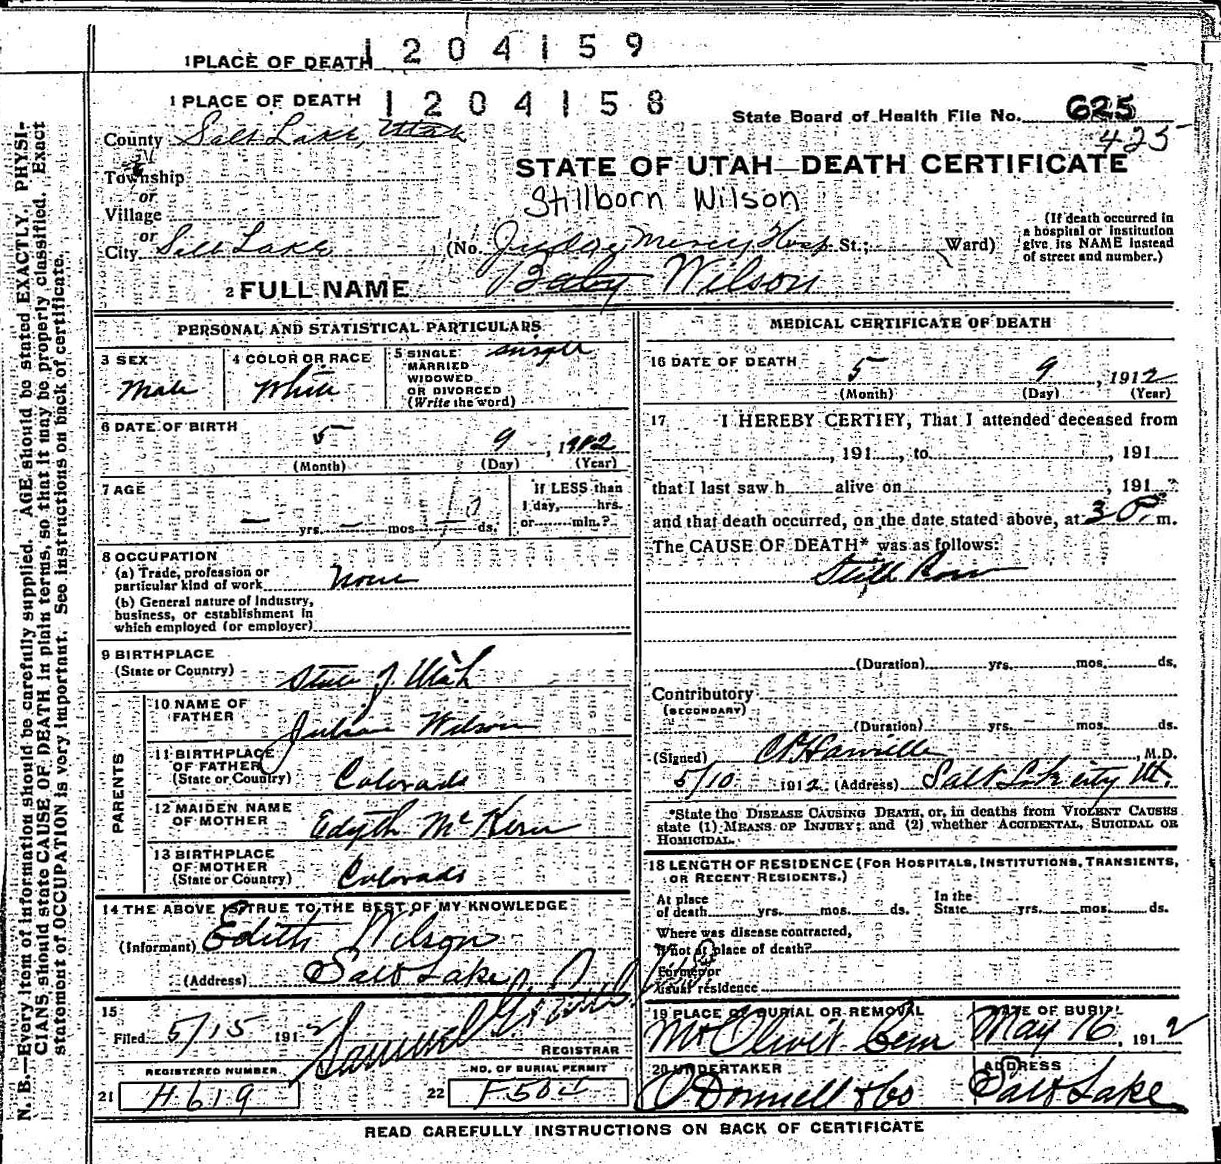 1 PLACE OF DEATH 1204159
1 PLACE OF DEATH 1204158
State Board of Health File No. 625
425
County Salt Lake, Utah
Township
or
Village
or
City Salt Lake
STATE OF UTAH—DEATH CERTIFICATE
Stillborn Wilson
(No. Mercy Hosp. St.; Ward)
(If death occurred in
a hospital or institution
give its NAME instead
of street and number.)
2 FULL NAME Baby Wilson
PERSONAL AND STATISTICAL PARTICULARS
3 SEX
Male
4 COLOR OR RACE
White
5 SINGLE
MARRIED
WIDOWED
OR DIVORCED
(Write the word)
single
6 DATE OF BIRTH
5 9, 1912
(Month) (Day) (Year)
7 AGE
— yrs. — mos. ds.
If LESS than
1 day, hrs.
or min.?
8 OCCUPATION
(a) Trade, profession or
particular kind of work None
(b) General nature of industry,
business, or establishment in
which employed (or employer)
9 BIRTHPLACE
(State or Country) State of Utah
PARENTS
10 NAME OF
FATHER Julian Wilson
11 BIRTHPLACE
OF FATHER
(State or Country) Colorado
12 MAIDEN NAME
OF MOTHER Edyth McKern
13 BIRTHPLACE
OF MOTHER
(State or Country) Colorado
14 THE ABOVE IS TRUE TO THE BEST OF MY KNOWLEDGE
(Informant) Edith Wilson
(Address) Salt Lake
15
Filed 5/15 1912 Samuel
REGISTRAR
REGISTERED NUMBER
21 H619
NO. OF BURIAL PERMIT
22
MEDICAL CERTIFICATE OF DEATH
16 DATE OF DEATH
5 9, 1912
(Month) (Day) (Year)
17 I HEREBY CERTIFY, That I attended deceased from
, 191 , to , 191
that I last saw h alive on , 191
and that death occurred, on the date stated above, at 3 P. m.
The CAUSE OF DEATH* was as follows:
Still Born
(Duration) yrs. mos. ds.
Contributory
(SECONDARY)
(Duration) yrs. mos. ds.
(Signed) M.D.
5/10 1912 (Address) Salt Lake City Ut.
*State the DISEASE CAUSING DEATH, or, in deaths from VIOLENT CAUSES
state (1) MEANS OF INJURY; and (2) whether ACCIDENTAL, SUICIDAL OR
HOMICIDAL.
18 LENGTH OF RESIDENCE (FOR HOSPITALS, INSTITUTIONS, TRANSIENTS,
OR RECENT RESIDENTS.)
At place
of death yrs. mos. ds.
In the
State yrs. mos. ds.
Where was disease contracted,
if not at place of death?
Former or
usual residence
19 PLACE OF BURIAL OR REMOVAL
Mt Olivet Cem
DATE OF BURIAL
May 16, 1912
20 UNDERTAKER
O'Donnell & Co
ADDRESS
Salt Lake
READ CAREFULLY INSTRUCTIONS ON BACK OF CERTIFICATE
N. B.—Every item of information should be carefully supplied. AGE should be stated EXACTLY. PHYSI-
CIANS should state CAUSE OF DEATH in plain terms, so that it may be properly classified. Exact
statement of OCCUPATION is very important. See instructions on back of certificate.